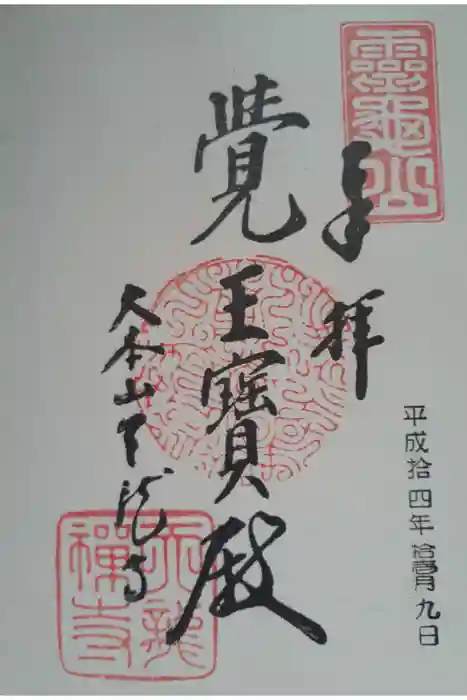 靈龜山
奉拝
平成拾四年拾壱月九日
覺王寶殿
大本山天龍寺
天龍禅寺